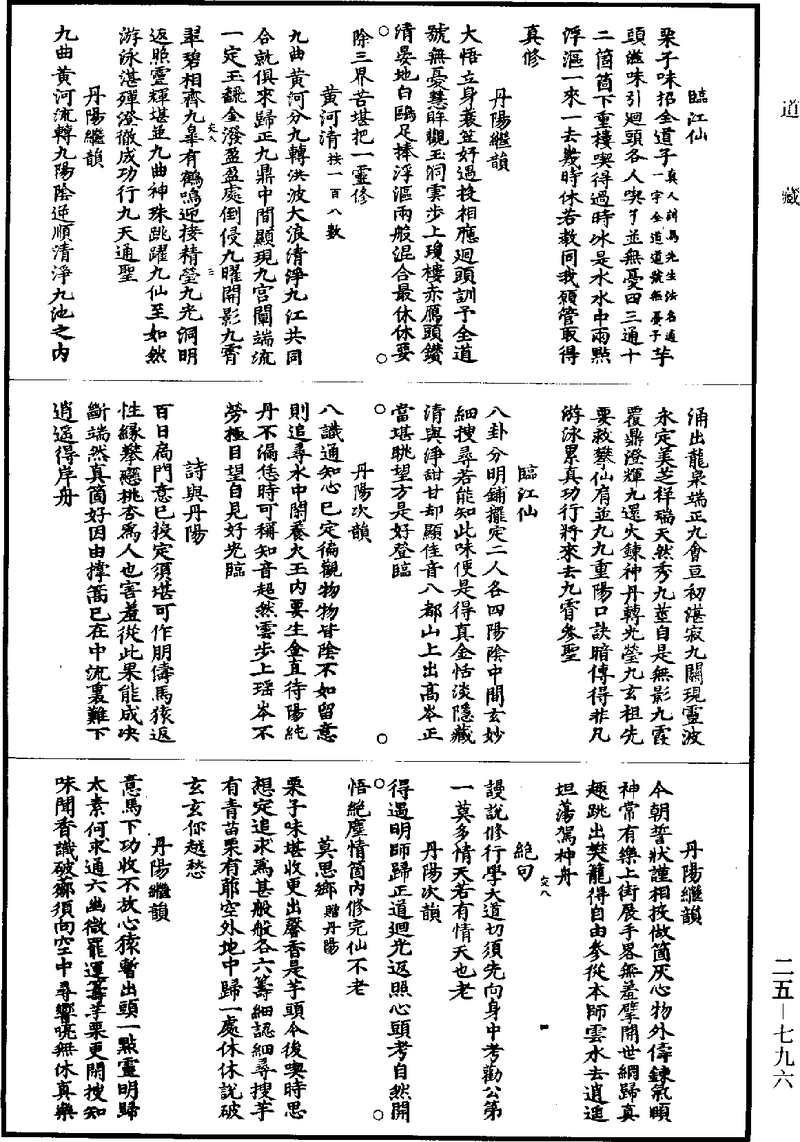 道藏
臨江仙
栗子味招全道子真人訓馬先生法名通一字全道道號無憂子芋
頭滋味引迴頭各人喫了並無憂四三通十
二箇箇下重樓喫得過時冰是水水中兩點
浮漚一來一去幾時休若教同我願管取得
真修
丹陽繼韻
大悟立身蓑笠好過投相應迴頭訓予全道
號無憂慧眸觀玉洞雲步上瓊樓赤鴈頭鑽
清晏地白鷗足捧浮漚兩般混合最休休要
除三界苦堪把一靈修
黃河清按一百八數
九曲黃河分九轉洪波大浪清淨九江共同
合就俱來歸正九鼎中間顯現九宮闡端流
一定玉甌金潑盈盈處倒侵九曜開影九霄
翠碧相齊九皐有鶴鳴迎接精瑩九光洞明
返照靈輝堪並九曲神珠跳躍九仙至如然
游泳湛殫澄徹成功行九天通聖
丹陽繼韻
九曲黃河流轉九陽陰逆順清淨九池之內
涌出龍泉端正九會亘初湛寂九關現靈波
永定美芝祥瑞天然秀九莖自是無影九霞
覆鼎澄輝九還火鍊神丹轉光瑩九玄祖先
要救攀仙肩並九九重陽口訣暗傳得非凡
游泳累真功行將來去九霄參聖
臨江仙
八卦分明鋪擺定二人各四陽陰中間玄妙
細搜尋若能知此味便是得真金恬淡隱藏
清與淨甜甘却顯佳音八都山上出高岑正
當堪眺望方是好登臨
丹陽次韻
八識通知心已定徧觀物物皆陰不如留意
則追尋水中閑養火玉內要生金直待陽純
丹不漏恁時可稱知音超然雲步上瑶岑不
勞極目望自見好光臨
詩與丹陽
百日扃門意已投定須堪可作朋儔馬猿返
性緣攀戀挑杏爲人也害羞從此果能成决
斷端然真箇好因由撑篙已在中流裏難下
逍遥得岸舟
丹陽繼韻
今朝誓狀謹相投做箇灰心物外儔鍊氣頤
神常有樂上街展手畧無羞擘開世網歸真
趣跳出樊籠得自由參從本師雲水去逍遥
坦蕩駕神舟
絶句
謾說修行學大道切須先向身中考勸公第
一莫多情天若有情天也老
丹陽次韻
得遇明師歸正道迴光返照心頭考自然開
悟絶塵情箇內修完仙不老
莫思鄉贈丹陽
栗子味堪收更出馨香是芋頭今後喫時思
想定追求爲甚般般各六籌細認細尋搜芋
有青苗栗有那空外地中歸一處休休說破
玄玄你越愁
丹陽繼韻
意馬下功收不放心猿暫出頭一點靈明歸
太素何求通六幽微罷運籌芋栗更閑搜知
味聞香識破鄉須向空中尋響喨無休真樂
二五—七九六